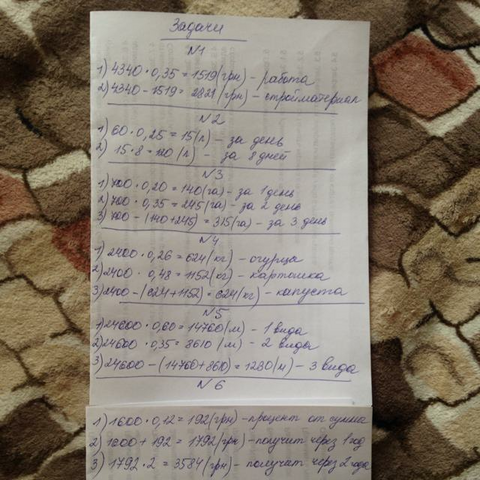 Задачи
N1
1) 4340 · 0,35 = 1519 (грн) - работа
2) 4340 - 1519 = 2821 (грн) - стройматериал
N2
1) 60 · 0,25 = 15 (л) - за день
2) 15 · 8 = 120 (л) - за 8 дней
N3
1) 700 · 0,20 = 140 (га) - за 1 день
2) 700 · 0,35 = 245 (га) - за 2 день
3) 700 - (140 + 245) = 315 (га) - за 3 день
N4
1) 2400 · 0,26 = 624 (кг) - огурца
2) 2400 · 0,48 = 1152 (кг) - картошка
3) 2400 - (624 + 1152) = 624 (кг) - капуста
N5
1) 24600 · 0,60 = 14760 (м) - 1 вида
2) 24600 · 0,35 = 8610 (м) - 2 виды
3) 24600 - (14760 + 8610) = 1230 (м) - 3 вида
N6
1) 1600 · 0,12 = 192 (грн) - процент от суммы
2) 1600 + 192 = 1792 (грн) - получит через 1 год
3) 1792 · 2 = 3584 (грн) - получат через 2 года